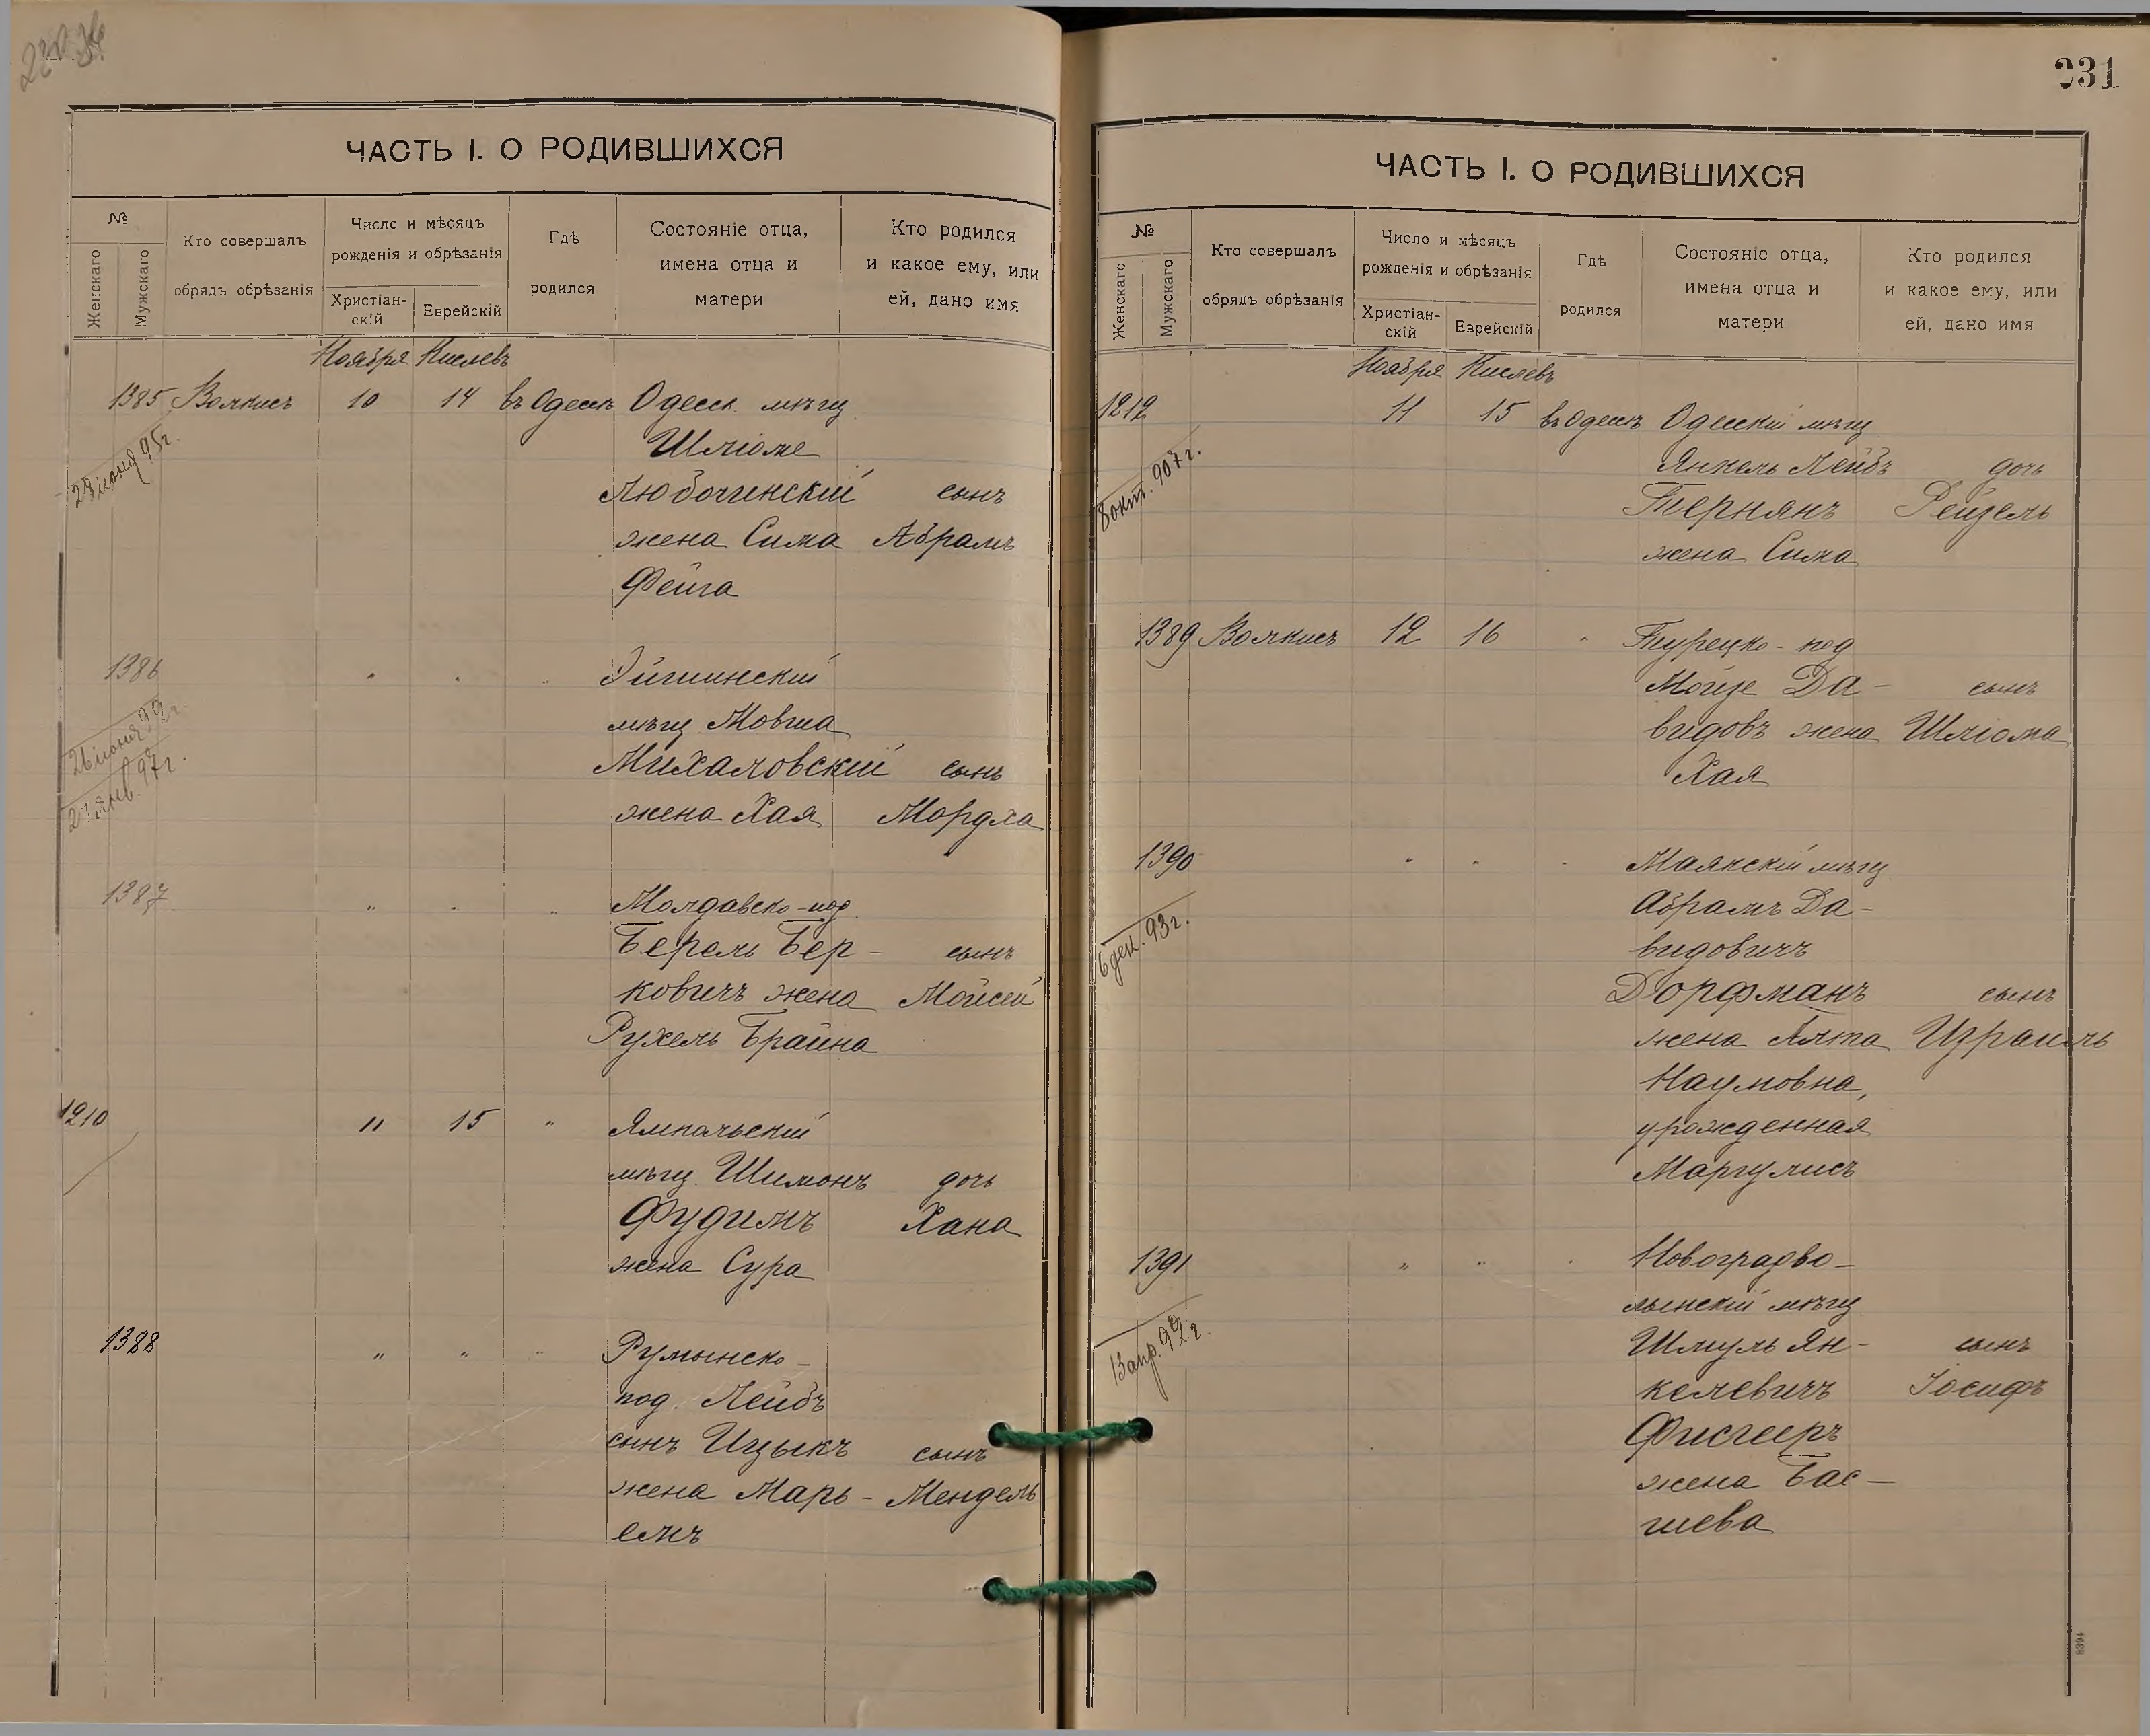 231
ЧАСТЬ I. О РОДИВШИХСЯ
№
Женскаго
Мужскаго
Кто совершалъ
обрядъ обрѣзанія
Число и мѣсяцъ
рожденія и обрѣзанія
Христіан-
скій
Еврейскій
Гдѣ
родился
Состояніе отца,
имена отца и
матери
Кто родился
и какое ему, или
ей, дано имя
Ноября Кислевъ
1385 Волкисъ 10 14 въ Одессѣ Одесск. мѣщ
28 іюня 95 г.
Шліоме
Любочинскій сынъ
жена Сима Абрамъ
Фейга
1386 " " "
26 іюня 92 г.
мѣщ Мовша
Михаловскій сынъ
жена Хая Мордха
2 янв. 97 г.
1387 " " " Молдавско-под
Берель Бер- сынъ
ковичъ жена Мойсей
Рухель Брайна
1210 11 15 " Ямпольскій
мѣщ. Шимонъ дочь
Фудимъ Хана
жена Сура
1388 " " " Румынско-
под. Лейбъ
сынъ Ицыкъ сынъ
жена Марь- Мендель
емъ
ЧАСТЬ I. О РОДИВШИХСЯ
№
Женскаго
Мужскаго
Кто совершалъ
обрядъ обрѣзанія
Число и мѣсяцъ
рожденія и обрѣзанія
Христіан-
скій
Еврейскій
Гдѣ
родился
Состояніе отца,
имена отца и
матери
Кто родился
и какое ему, или
ей, дано имя
Ноября Кислевъ
1212 11 15 въ Одессѣ Одесскій мѣщ
8 окт. 907 г.
Янкель Лейбъ дочь
Тернянъ Рейзель
жена Сима
1389 Волкисъ 12 16 " Турецко-под
Мойзе Да- сынъ
видовъ жена Шліома
Хая
1390 " " " Маякскій мѣщ
6 дек. 93 г.
Абрамъ Да-
видовичъ
Дорфманъ сынъ
жена Алта Израиль
Наумовна,
урожденная
Маргулисъ
1391 " " " Новоградво-
лынскій мѣщ
13 апр. 99 г.
Шмуль Ян- сынъ
келевичъ Іосифъ
Фисгееръ
жена Бас-
шева
8394